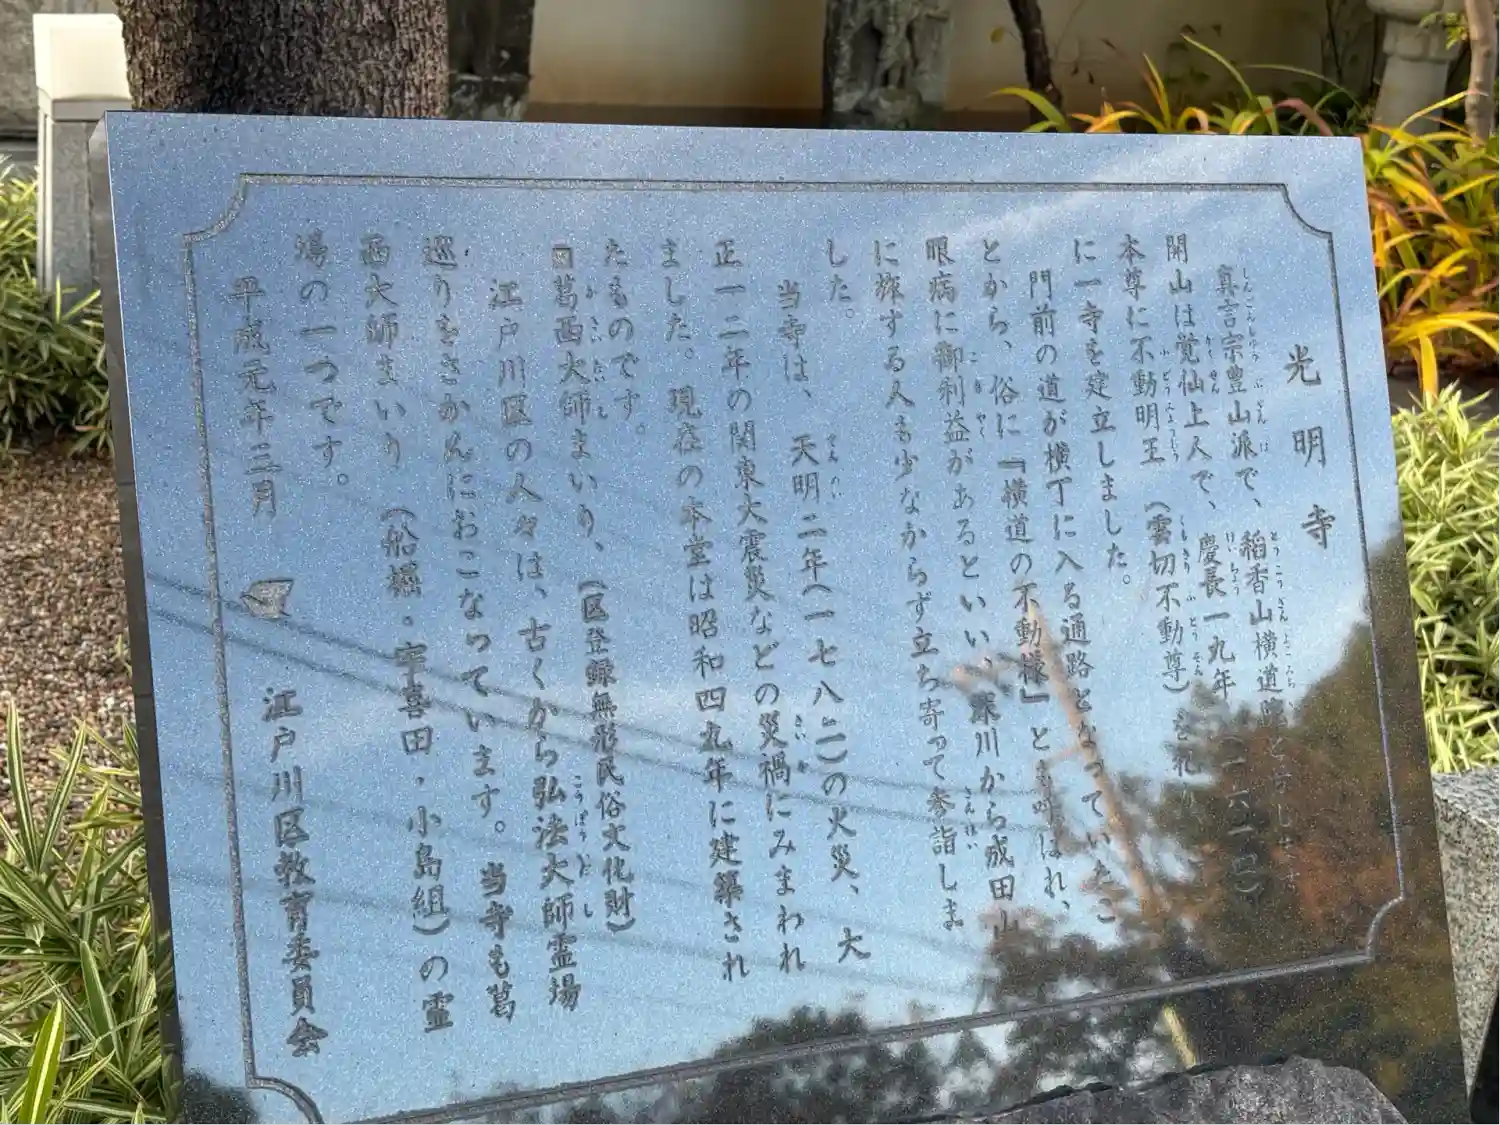 光明寺
真言宗豊山派で、稲香山横道院と
開山は覚仙上人で、慶長一九年(一六一四)
本尊に不動明王(雲切不動尊)を
に一寺を建立しました。
門前の道が横丁に入る通路となっていたこ
とから、俗に『横道の不動様』とも呼ばれ、
眼病に御利益があるといい、深川から成田山
に旅する人も少なからず立ち寄って参詣しま
した。
当寺は、天明二年(一七八二)の火災、大
正一二年の関東大震災などの災禍にみまわれ
ました。現在の本堂は昭和四九年に建築され
たものです。
□葛西大師まいり、(区登録無形民俗文化財)
江戸川区の人々は、古くから弘法大師霊場
巡りをさかんにおこなっています。当寺も葛
西大師まいり(船堀・宇喜田・小島組)の霊
場の一つです。
平成元年三月 江戸川区教育委員会